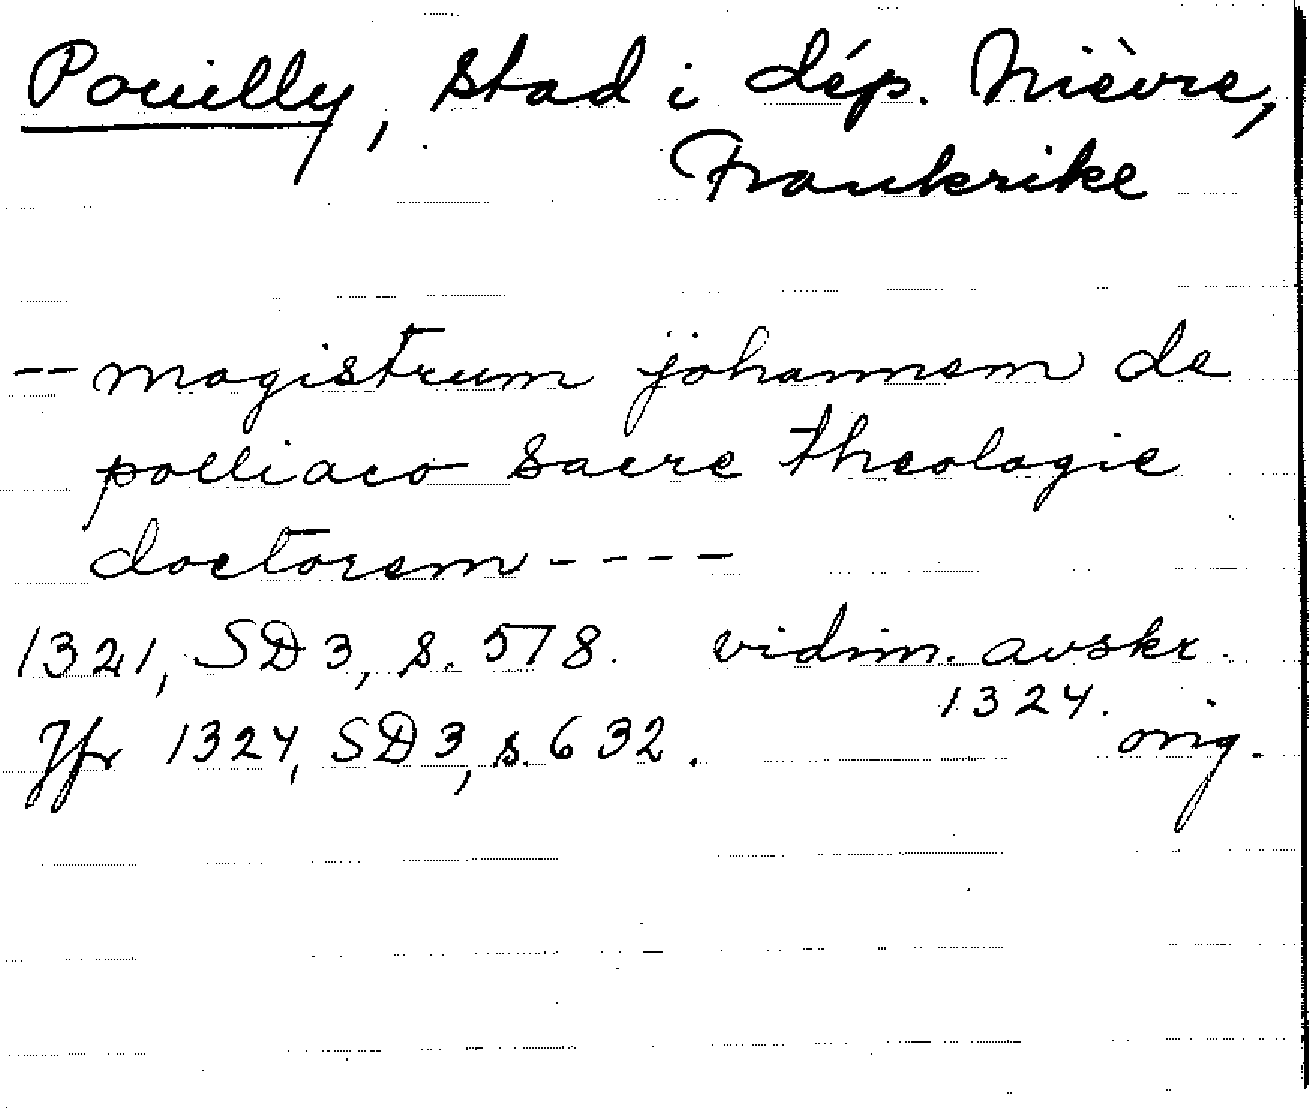 Pouilly, stad i dép. Nièvre,
Frankrike
-- magistrum johannem de
polliaco sacre theologie
doctorem ----
1321, SD 3, s. 578. vidim. avskr.
1324.
Jfr 1324, SD 3, s. 632. orig.